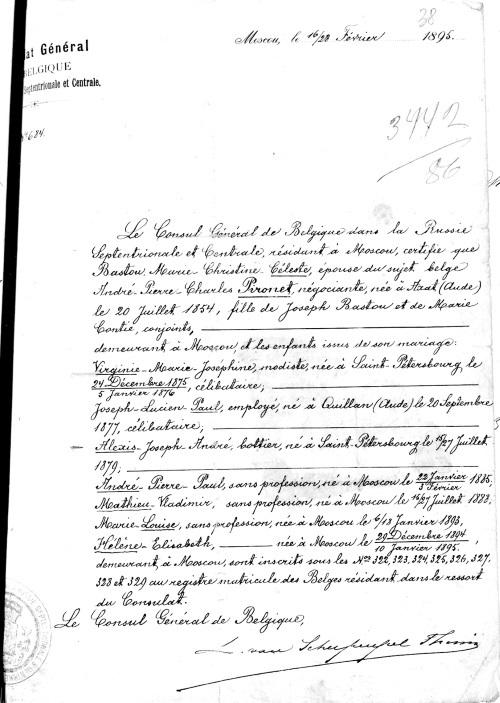 38
Moscou, le 16/28 Février 1895.
at Général
BELGIQUE
Septentrionale et Centrale.
No 684.
3442
86
Le Consul Général de Belgique dans la Russie
Septentrionale et Centrale, résidant à Moscou, certifie que
Bastou, Marie Christine Céleste, épouse du sujet belge
André-Pierre-Charles Pironet, négociante, née à Axat (Aude)
le 20 Juillet 1854, fille de Joseph Bastou et de Marie
Contié, conjoints,
demeurant à Moscou, et les enfants issus de son mariage:
Virginie-Marie-Josephine, modiste, née à Saint-Pétersbourg, le
24 Décembre 1875 / 5 Janvier 1876, célibataire;
Joseph-Lucien-Paul, employé, né à Quillan (Aude) le 20 Septembre
1877, célibataire;
Alexis-Joseph-André, bottier, né à Saint-Pétersbourg le 15/27 Juillet
1879;
André-Pierre-Paul, sans profession, né à Moscou le 22 Janvier / 3 Février 1885,
Mathieu-Vladimir, sans profession, né à Moscou le 16/27 Juillet 1883,
Marie-Louise, sans profession, née à Moscou le 6/18 Janvier 1893,
Hélène-Elisabeth, née à Moscou le 29 Décembre 1894 / 10 Janvier 1895,
demeurant à Moscou, sont inscrits sous les Nos 322, 323, 324, 325, 326, 327,
328 et 329 au registre matricule des Belges résidant dans le ressort
du Consulat.
Le Consul Général de Belgique,
L. van